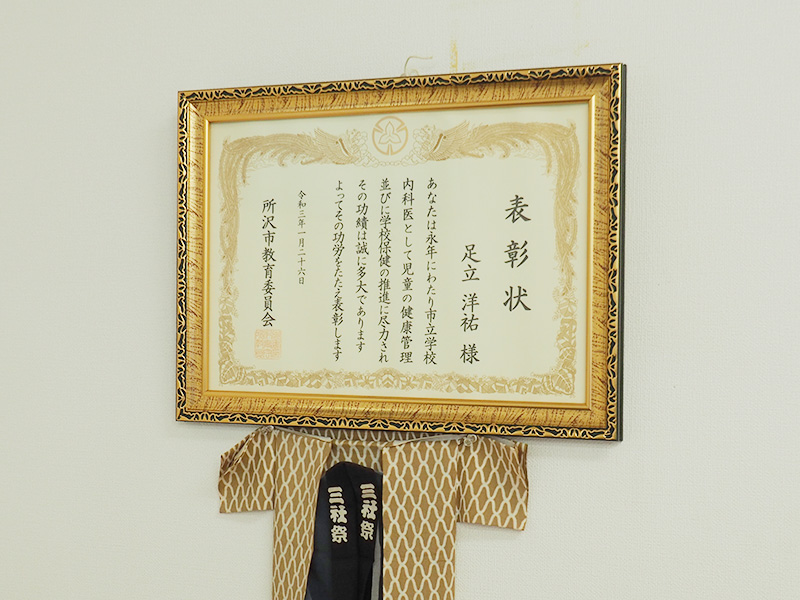 表彰状
足立 洋祐 様
あなたは永年にわたり市立学校
内科医として児童の健康管理
並びに学校保健の推進に尽力され
その功績は誠に多大であります
よってその功労をたたえ表彰します
令和三年一月二十六日
所沢市教育委員会
三社祭
三社祭